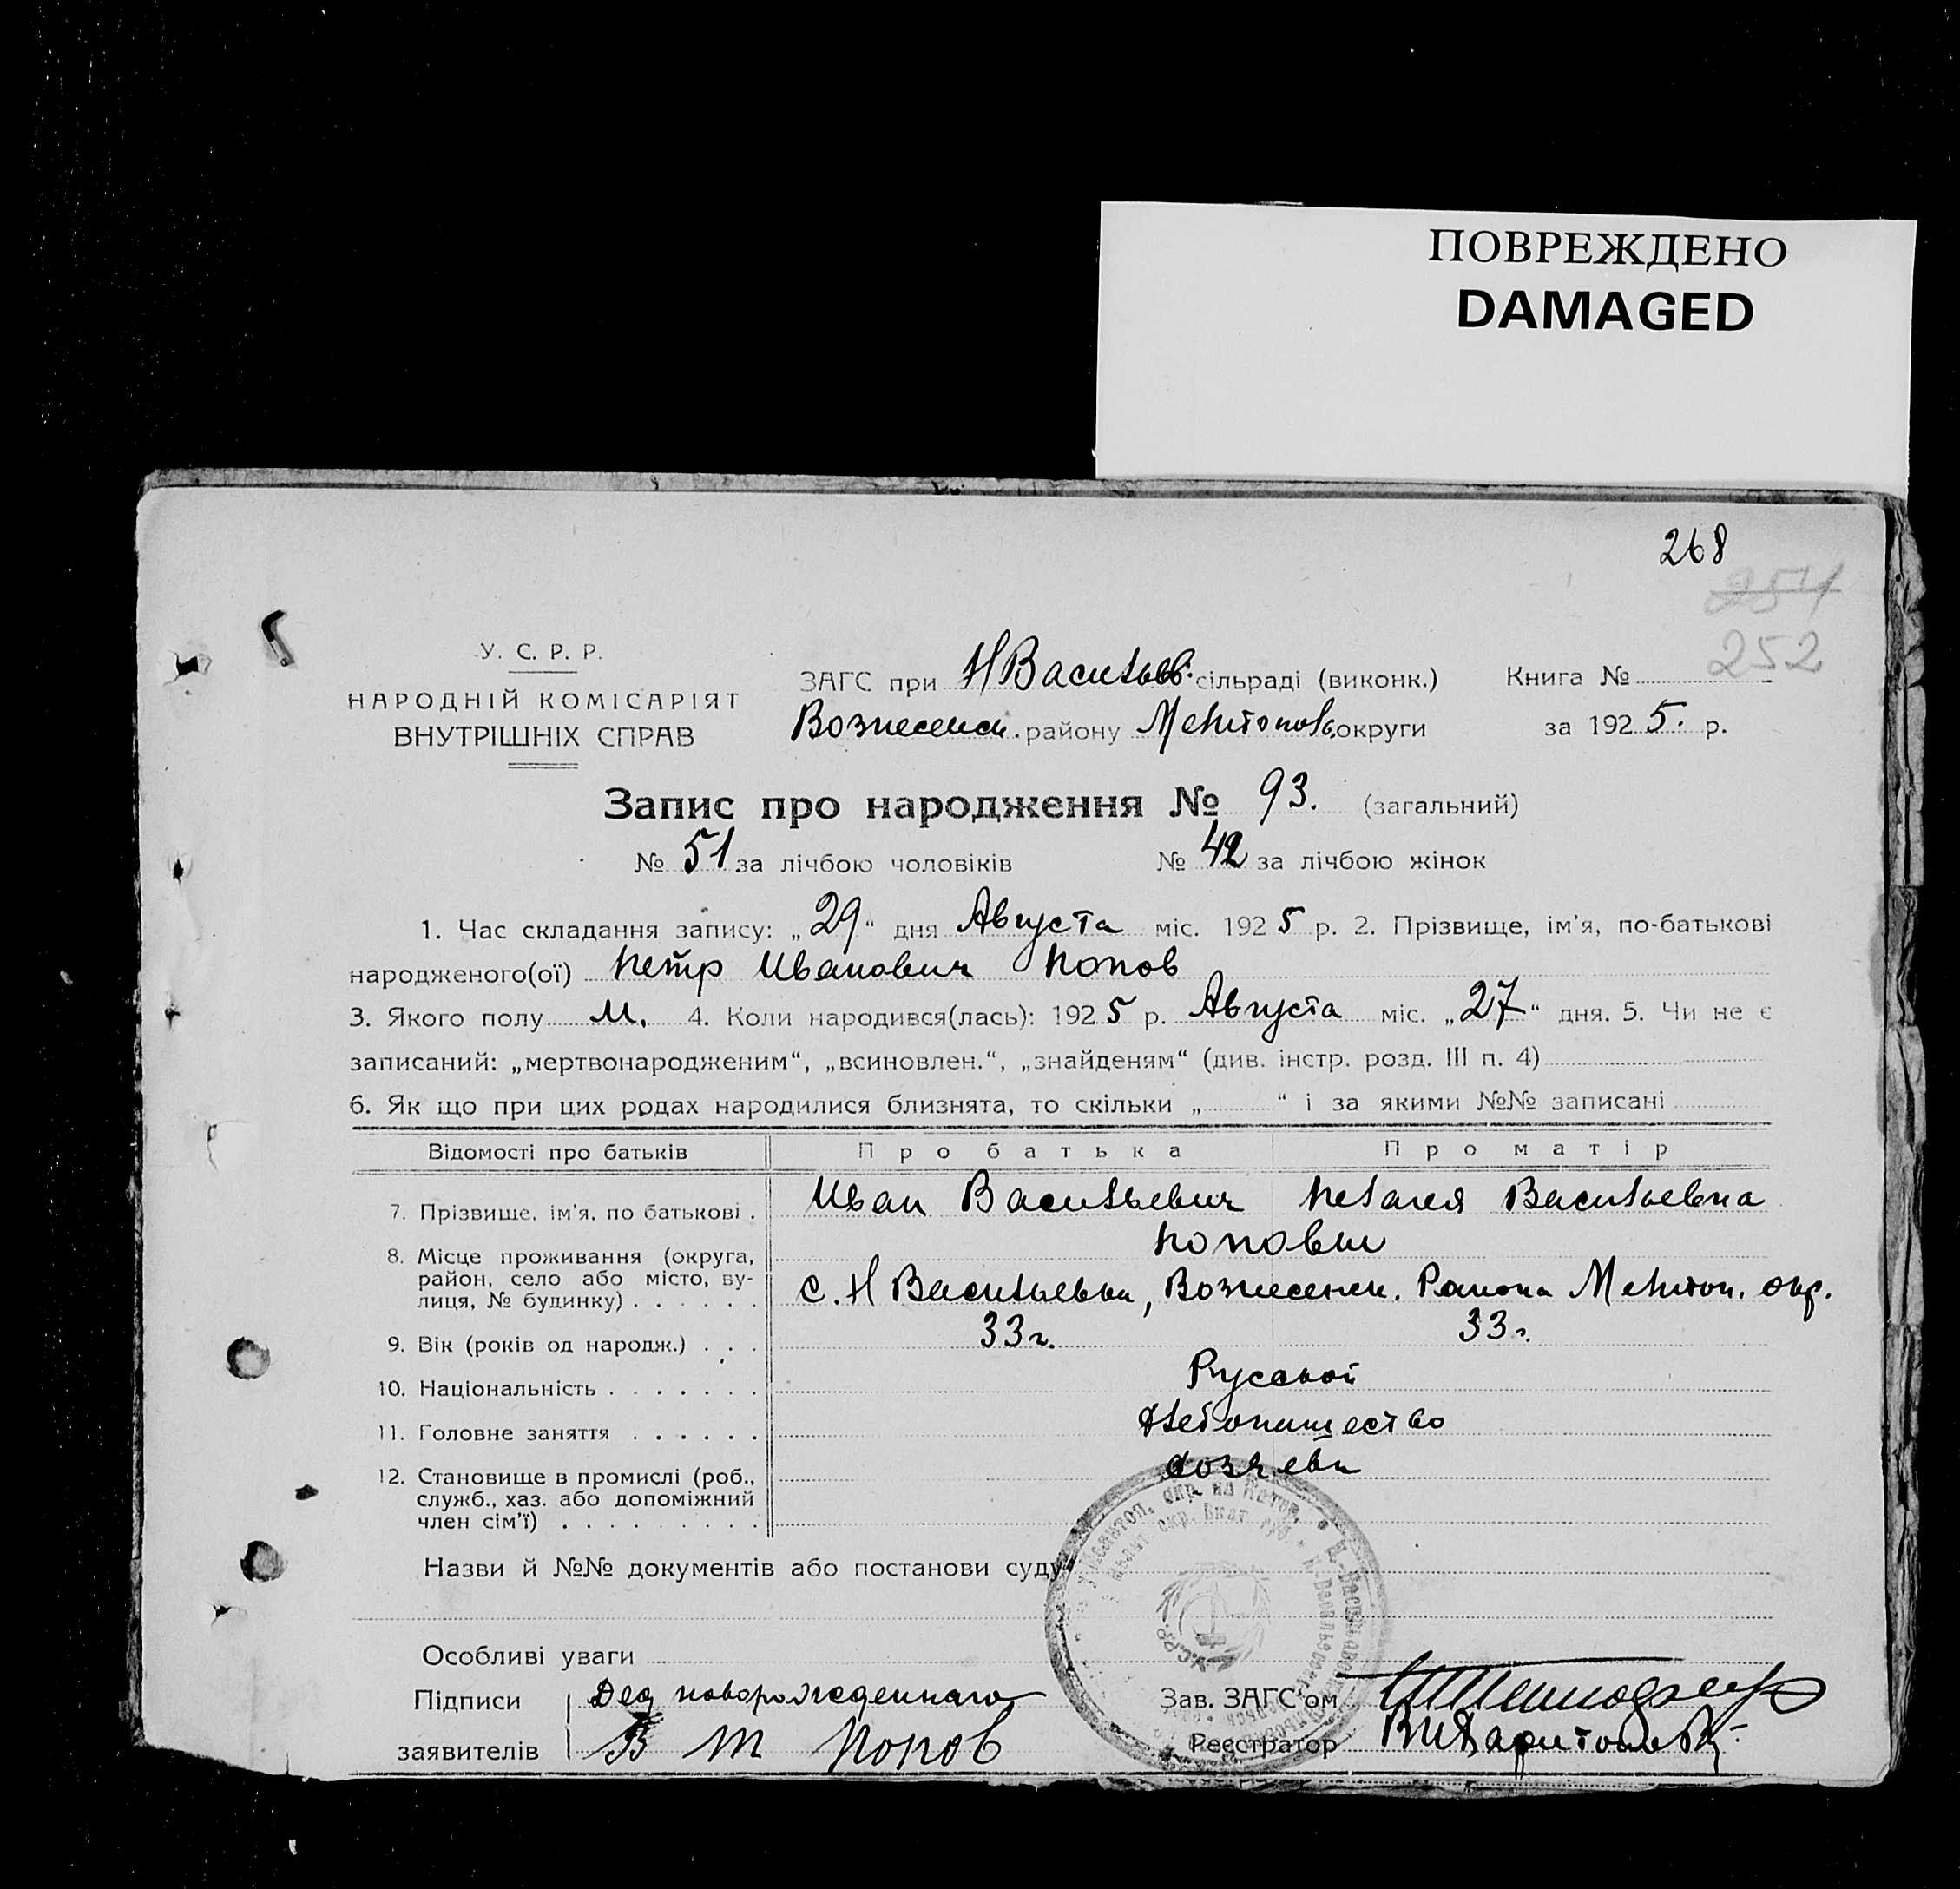 ПОВРЕЖДЕНО
DAMAGED
268
254
252
У. С. Р. Р.
НАРОДНІЙ КОМІСАРІЯТ
ВНУТРІШНІХ СПРАВ
ЗАГС при Н Васильев. сільраді (виконк.) Книга №
Вознесенск. району Мелитополь. округи за 1925. р.
Запис про народження № 93. (загальний)
№ 51 за лічбою чоловіків № 42 за лічбою жінок
1. Час складання запису: „29“ дня Августа міс. 1925 р. 2. Прізвище, ім'я, по-батькові
народженого(ої) Петр Иванович Попов
3. Якого полу м. 4. Коли народився(лась): 1925 р. Августа міс. „27“ дня. 5. Чи не є
записаний: „мертвонародженим“, „всиновлен.“, „знайденям“ (див. інстр. розд. III п. 4)
6. Як що при цих родах народилися близнята, то скільки „ “ і за якими №№ записані
Відомості про батьків Про батька Про матір
7. Прізвище, ім'я, по батькові . Иван Васильевич Пелагея Васильевна
Поповы
8. Місце проживання (округа,
район, село або місто, ву-
лиця, № будинку) . . . . . . с. Н Васильевки, Вознесенск. Района Мелитоп. окр.
9. Вік (років од народж.) . . . 33 г. 33 г.
10. Національність . . . . . . . Русской
11. Головне заняття . . . . . . Хлебопашество
12. Становище в промислі (роб., хозяева
служб., хаз. або допоміжний
член сім'ї) . . . . . . . . .
Назви й №№ документів або постанови суду
Особливі уваги
Підписи Дед новорожденнаго Зав. ЗАГС'ом
заявителів В Т Попов Реєстратор